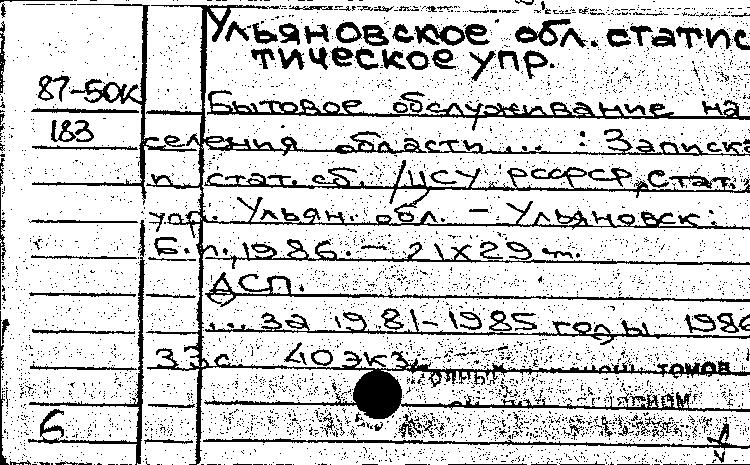 Ульяновское обл. статис
тическое упр.
87-50К
Бытовое обслуживание на
183
селения области ... : Записка
и стат. сб. /ЦСУ РСФСР, Стат.
упр. Ульян. обл. – Ульяновск:
Б.и., 1986. – 21х29 см.
ДСП.
... за 1981-1985 годы. 1986
33с 40экз.
томов
6